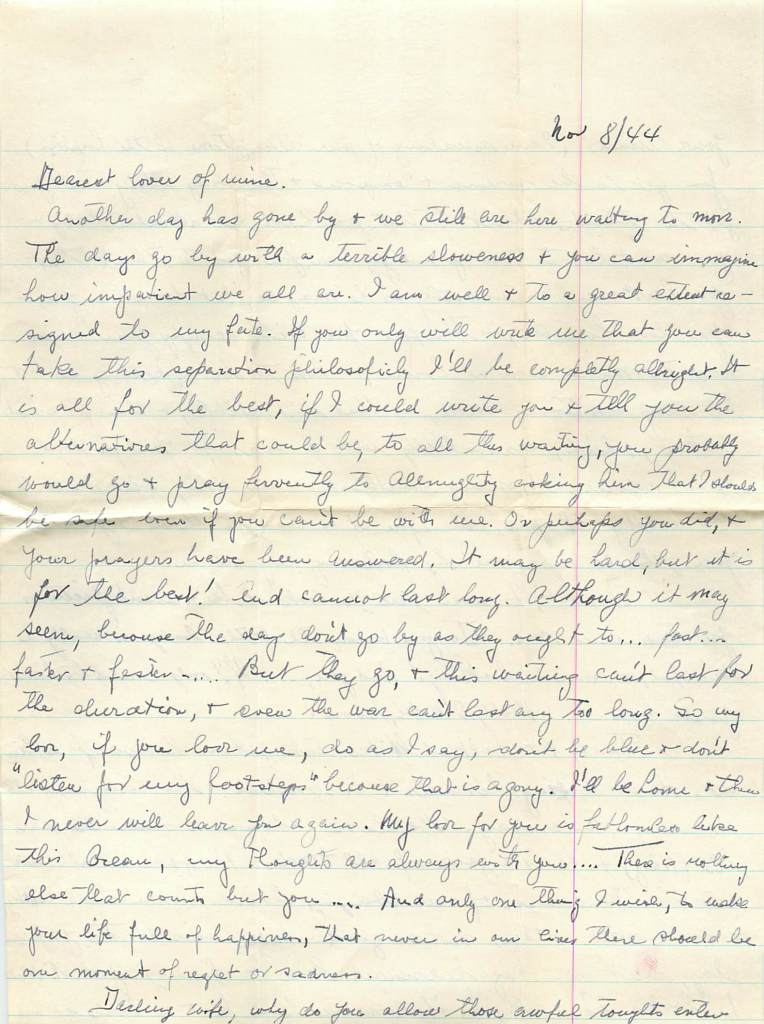 Nov 8/44
Dearest lover of mine.
Another day has gone by + we still are here waiting to move.
The days go by with a terrible sloweness + you can immagine
how impatient we all are. I am well + to a great extent re-
signed to my fate. If you only will write me that you can
take this separation philosoficly I'll be completly allright. It
is all for the best, if I could write you + tell you the
alternatives that could be, to all this waiting, you probably
would go + pray fervently to Allmighty asking him that I should
be safe even if you can't be with me. Or perhaps you did, +
your prayers have been answered. It may be hard, but it is
for the best! And cannot last long. Although it may
seem, because the days don't go by as they ought to... fast...
faster + faster..... But they go, + this waiting can't last for
the duration, + even the war can't last any too long. So my
love, if you love me, do as I say, don't be blue + don't
"listen for my footsteps" because that is agony. I'll be home + then
I never will leave you again. My love for you is fathomless like
this Ocean, my thoughts are always with you.... There is nothing
else that counts but you .... And only one thing I wish, to make
your life full of happiness, that never in our lives there should be
one moment of regret or sadness.
Darling wife, why do you allow those awful toughts enter